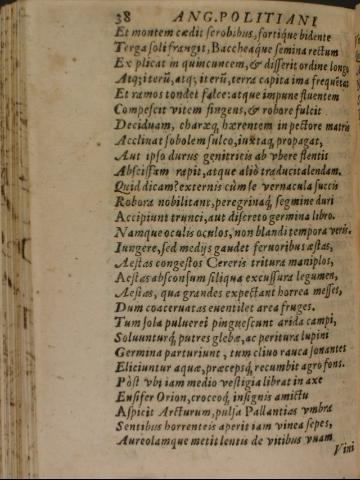 38 ANG. POLITIANI
Et montem cædit scrobibus, fortique bidente
Terga soli frangit, Baccheaque semina rectum
Explicat in quincuncem, & disserit ordine longo
Atq; iterũ, atq; iterũ, terra capita ima frequẽtat
Et ramos tondet falce: atque impune fluentem
Compescit vitem fingens, & robore fulcit
Deciduam, charæq, hærentem in pectore matris
Acclinat sobolem sulco, iuxtaq, propagat,
Aut ipso durus genitricis ab vbere flentis
Abscissam rapit, atque alio traducit alendam.
Quid dicam? externis cùm se vernacula succis
Robora nobilitant, peregrinaq, segmine duri
Accipiunt trunci, aut discreto germina libro.
Namque oculis oculos, non blandi tempora veris.
Iungere, sed medijs gaudet feruoribus æstas,
Aestas congestos Cereris tritura maniplos,
Aestas absconsum siliqua excussura legumen,
Aestas, qua grandes expectant horrea messes,
Dum coaceruatas euentilet area fruges.
Tum sola puluerei pinguescunt arida campi,
Soluunturq, putres glebæ, ac peritura lupini
Germina parturiunt, tum cliuo rauca sonantes
Eliciuntur aquæ, præcepsq, recumbit agro fons.
Pòst vbi iam medio vestigia librat in axe
Ensifer Orion, croceoq, insignis amictu
Aspicit Arcturum, pulsa Pallantias vmbra
Sentibus horrenteis aperit iam vinea sepes,
Aureolamque metit lentis de vitibus vuam
Vini